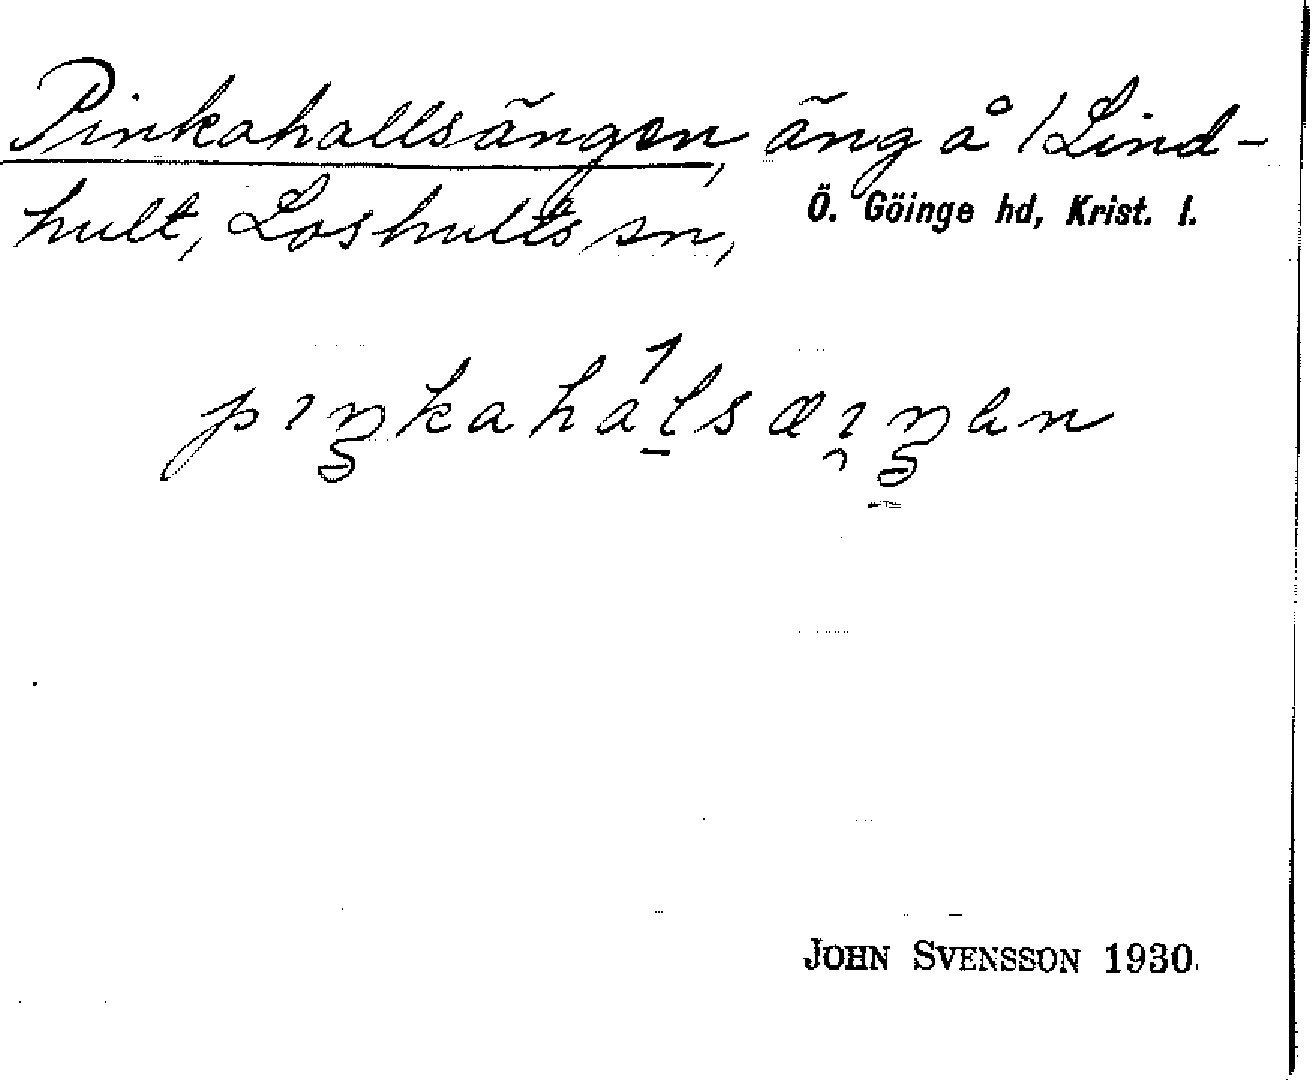 Pinkahallsängen, äng å /Lind-
hult, Loshults sn, Ö. Göinge hd, Krist. l.
pıŋkahálsæıŋan
JOHN SVENSSON 1930.